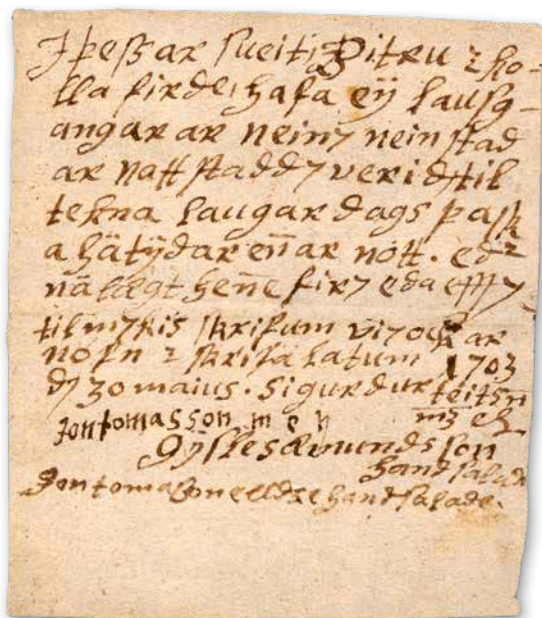 J þeßar sueit, Bitru ⁊ ko-
lla firde, hafa eÿ lausg-
angar ar neinz nein stad
ar natt staddz verid til
tekna laugar dags pask
a hätÿdar en̄ar nott. edr
nälægt hen̄e firz eda efftz
til mzkis skrifum vi ockar
nofn ⁊ skrifa latum 1703
dz 30 maius. Sigurdur teitsn̄
mz eh
Jon tomasson m e h
Gÿsle sæmunds son
handsalade
Jon tomasson elldre handsalade.